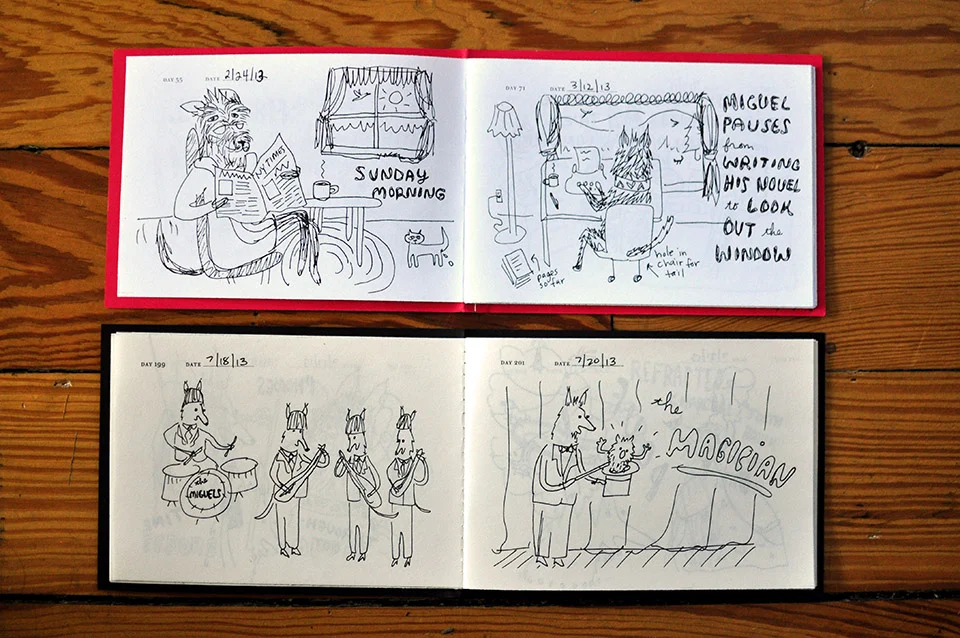 DAY 55 DATE 2/24/13
TIMES
SUNDAY
MORNING
DAY 71 DATE 3/12/13
MIGUEL
PAUSES
from
WRITING
HIS NOVEL
to LOOK
OUT the
WINDOW
pages
so far
hole in
chair for
tail
DAY 199 DATE 7/18/13
the
MIGUELS
DAY 201 DATE 7/20/13
the
MAGICIAN